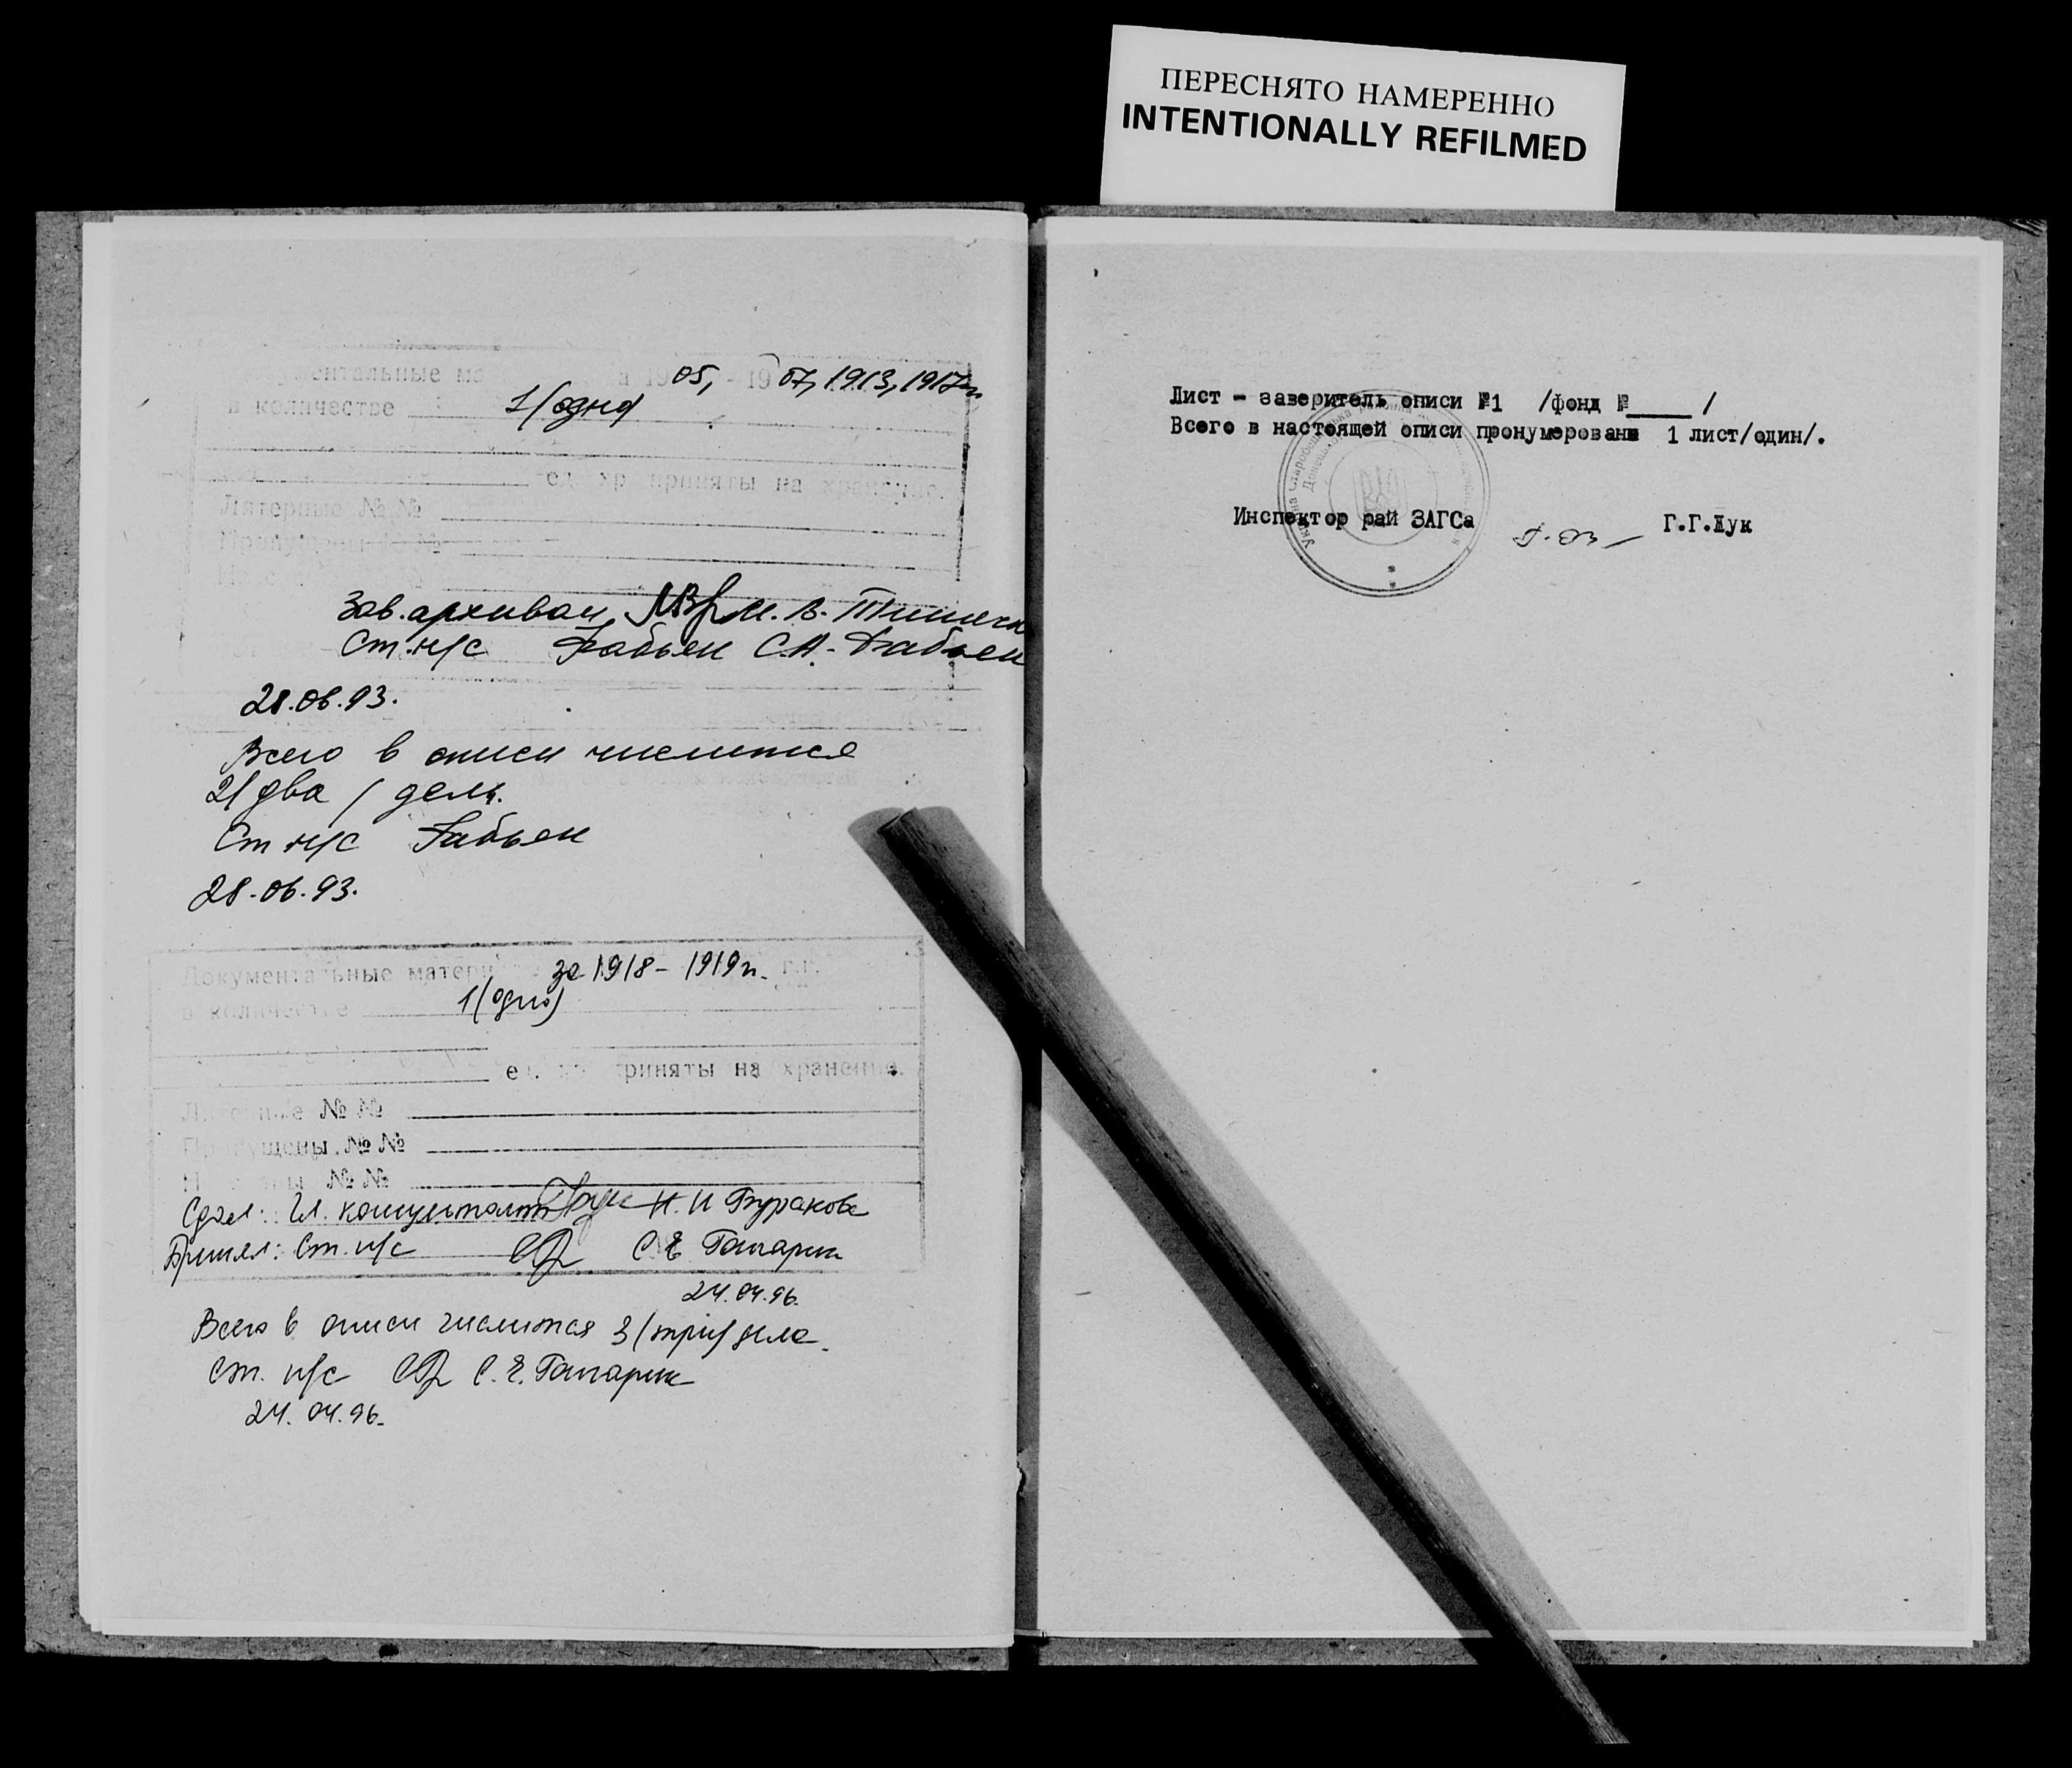 ПЕРЕСНЯТО НАМЕРЕННО
INTENTIONALLY REFILMED
05, - 19 07, 1913, 1917 гг
в количестве 1 (одно)
ед. хр приняты на хранение.
Литерные № №
Пропущены № №
Зав. архивом М. В.
Ст. н/с Бабьен С.А. Бабьен
28.06.93.
Всего в описи числится
2 / два / дела.
Ст. н/с Бабьен
28.06.93.
Документальные матери за 1918 - 1919 гг. г.г.
в количестве 1 (одно)
ед. хр приняты на хранение.
Литерные № №
Пропущены № №
№ №
Сдал: Гл. консультант Н. И Буракова
Принял: Ст. н/с С. Е
24.04.96.
Всего в описи числится 3 (три) дела.
Ст. н/с С. Е.
24. 04. 96.
Лист - заверитель описи №1 /фонд №_____ /
Всего в настоящей описи пронумерован 1 лист/один/.
Инспектор рай ЗАГСа Г.Г.Жук